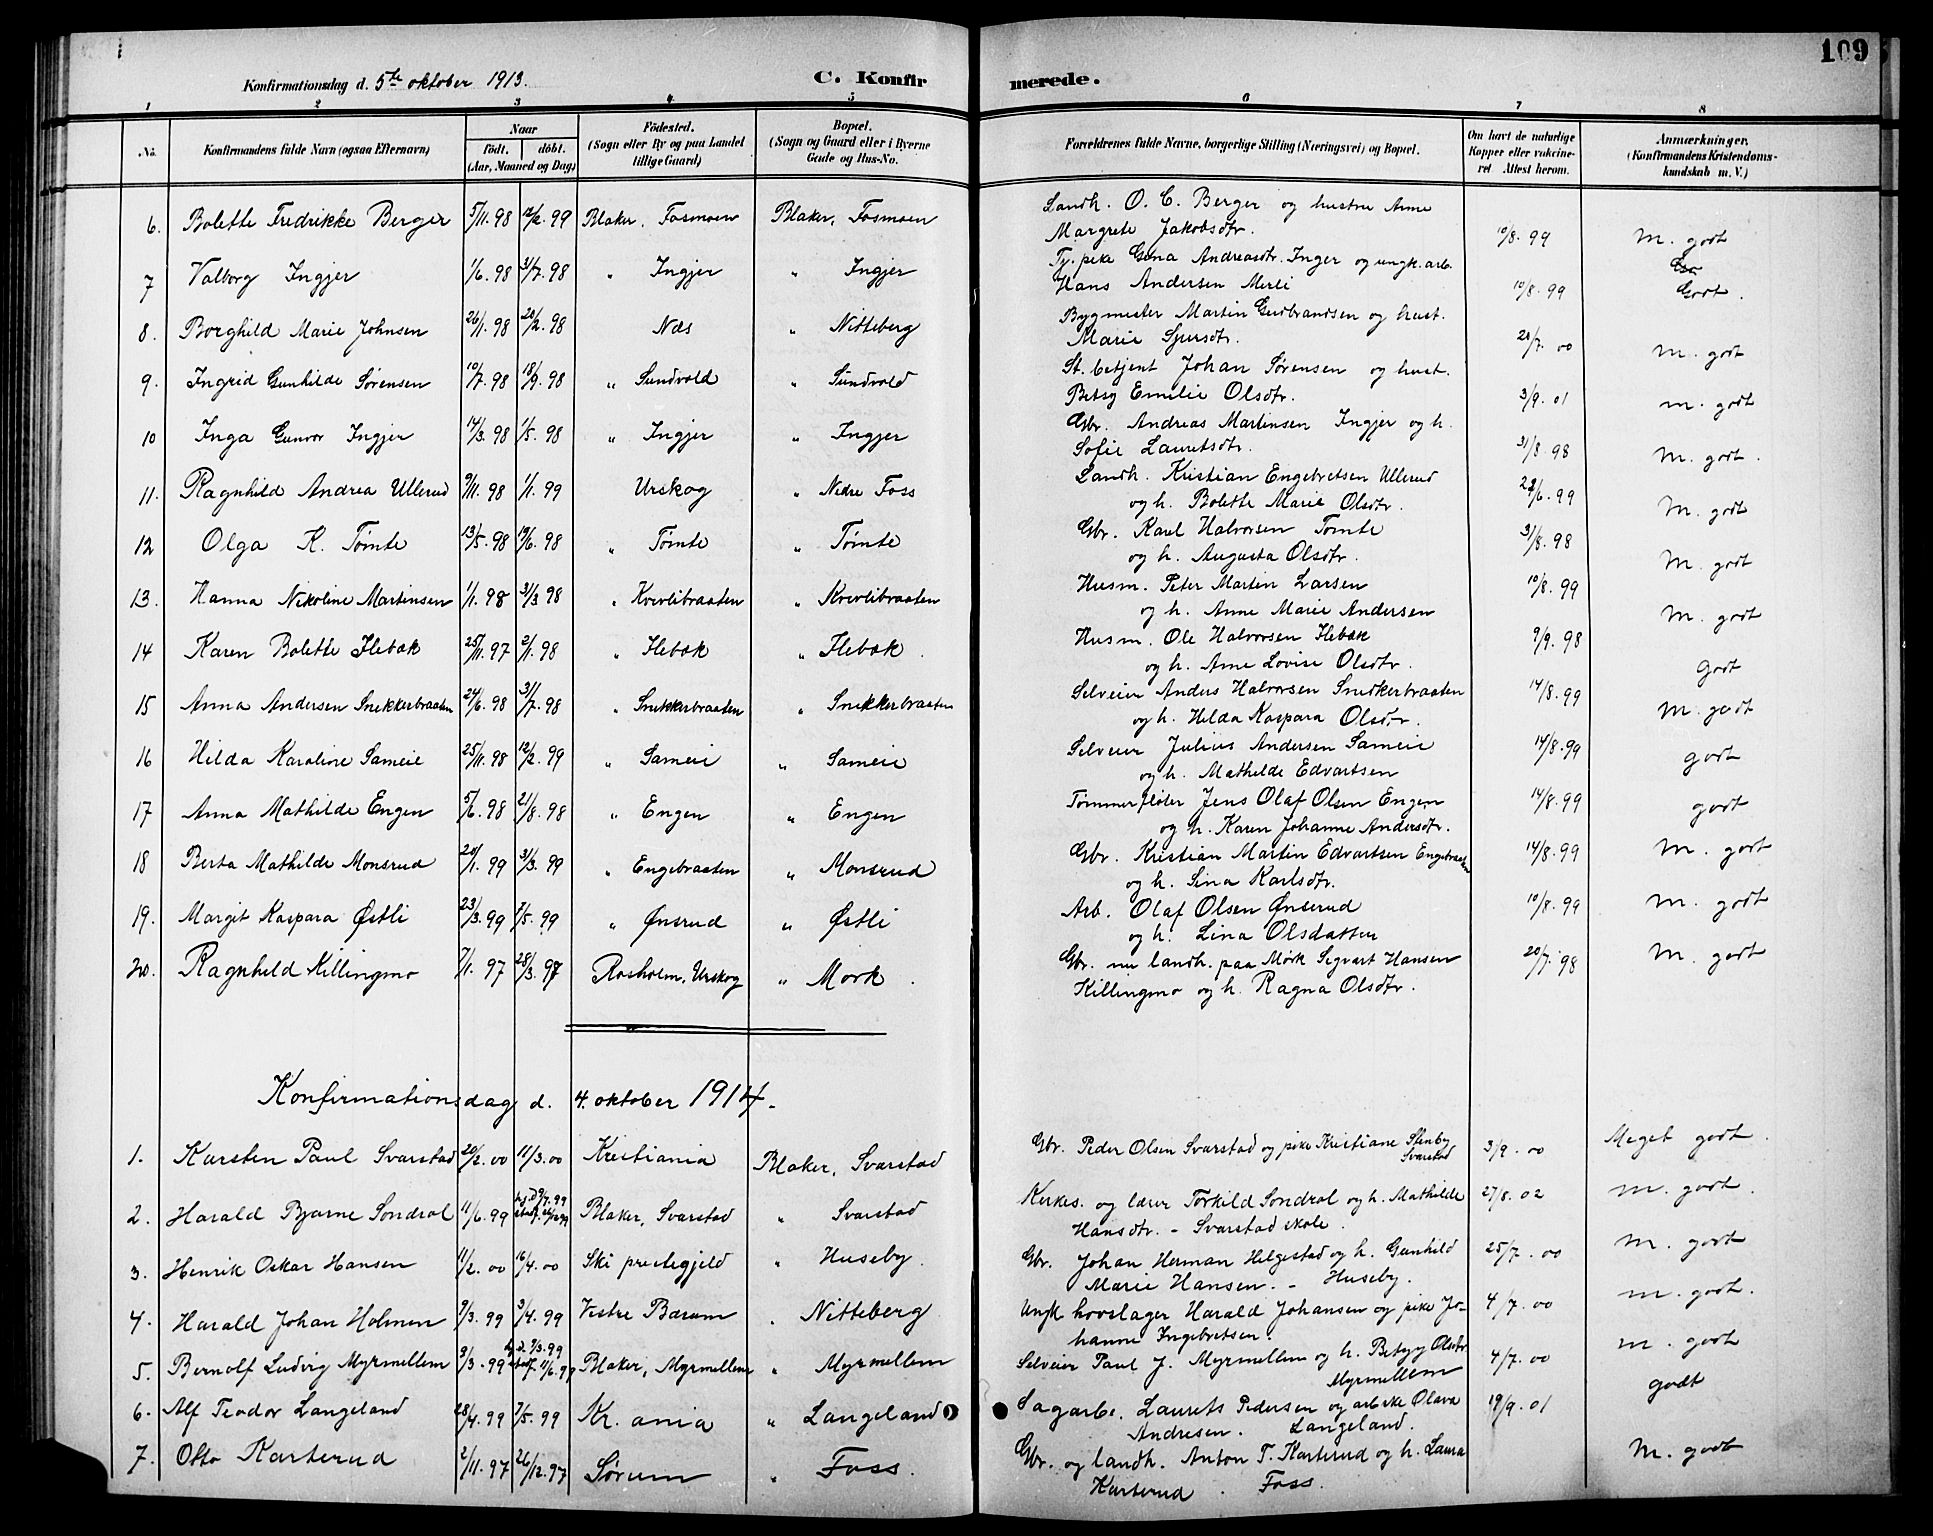 109
Konfirmationsdag d. 5te oktober 1913. C. Konfirmerede.
1 2 3 4 5 6 7 8
No. Konfirmandens fulde Navn (ogsaa Efternavn) Naar födt. döbt. (Aar, Maaned og Dag) Födested. (Sogn eller By og paa Landet tillige Gaard) Bopæl. (Sogn og Gaard eller i Byerne Gade og Hus-No. Forældrenes fulde Navne, borgerlige Stilling (Næringsvei) og Bopæl. Om havt de naturlige Kopper eller vaccineret Attest herom. Anmærkninger. (Konfirmandens Kristendomskundskab m. V.)
6. Bolette Fredrikke Berger 5/11.98 12/2.99 Blaker, Fosmoen Blaker, Fosmoen Landh. O. C. Berger og hustru Anne
Margrete Jakobsdtr. 10/8.99 M. godt
7 Valborg Ingjer 1/6.98 31/7.98 " Ingjer " Ingjer Tj. pike Gina Andreasdtr. Inger og ungk. arb.
Hans Andersen Merli 10/8.99 Godt.
8. Borghild Marie Johnsen 26/1.98 20/2.98 Nes " Nitteberg Bygmester Martin Gudbrandsen og hust.
Marie Sjursdtr. 20/7.00 M. godt
9. Ingrid Gunhilde Sørensen 10/7.98 18/9.98 " Sundvold " Sundvold St. betjent Johan Sørensen og hust.
Betsy Emilie Olsdtr. 3/9.01 m. godt
10 Inga Gunvor Ingjer 14/3.98 1/5.98 " Ingjer " Ingjer Gbr. Andreas Martinsen Ingjer og h.
Sofie Lauretsdtr. 31/8.98 M. godt.
11. Ragnhild Andrea Ullerud 9/11.98 1/1.99 Urskog " Nedre Foss Landh. Kristian Engebretsen Ullerud
og h. Bolette Marie Olsdtr. /6.99 M. godt
12 Olga K. Tømte 13/5.98 19/6.98 " Tømte " Tømte Gbr. Karl Halvorsen Tømte
og h. Augusta Olsdtr. 31/8.98 M. godt
13. Hanna Nikoline Martinsen 1/1.98 31/3.98 " Kvevlibraaten " Kvevlibraaten Husm. Peter Martin Larsen
og h. Anne Marie Andersen 10/8.99 M. godt
14 Karen Bolette Flebæk 25/11.97 2/1.98 " Flebæk " Flebæk. Husm. Ole Halvorsen Flebæk
og h. Anne Lovise Olsdtr. 9/9.98 Godt
15 Anna Andersen Snekkerbraaten 24/6.98 31/7.98 " Snekkerbraaten " Snekkerbraaten Selveier Anders Halvorsen Snedkerbraaten
og h. Hilda Kaspara Olsdtr. 14/8.99 M. godt
16 Hilda Karoline Sameie 25/11.98 12/2.99 " Sameie " Sameie Selveier Julius Andersen Sameie
og h. Mathilde Edvartsen 14/8.99 godt
17 Anna Mathilde Engen 5/6.98 21/8.98 " Engen " Engen Tømmerfløter Jens Olaf Olsen Engen
og h. Karen Johanne Andersdtr. 14/8.99 godt
18 Berta Mathilde Monsrud 20/1.99 31/3.99 " Engebraaten " Monsrud Gbr. Kristian Martin Edvartsen Engebraaten
og h. Lina Karlsdtr. 14/8.99 M. godt
19. Margit Kaspara Østli 23/3.99 7/5.99 " Ønsrud " Østli Arb. Olaf Olsen Ønserud
og h. Lina Olsdatter 10/8.99 M. godt
20. Ragnhild Killingmo 7/1.97 28/3.97 Rosholm, Urskog " Mork. Gbr. nu landh. paa Mørk Sigvart Hansen
Killingmo og h. Ragna Olsdtr. 20/7.98 M. godt
Konfirmationsdag d. 4. oktober 1914.
1. Karsten Paul Svarstad 20/2.00 11/3.00 Kristiania Blaker, Svarstad Gbr. Peder Olsen Svarstad og pike Kristiane Stenby
Svarstad 3/9.00 Meget godt.
2. Harald Bjarne Sondral 11/6.99 Blaker, Svarstad " Svarstad Kirkes. og lærer Torkild Sondral og h. Mathilde
Hansdtr. - Svarstad skole. 27/8.02 M. godt.
3. Henrik Oskar Hansen 11/2.00 16/4.00 Ski prestegjeld " Huseby. Gbr. Johan Herman Helgestad og h. Gunhild
Marie Hansen. - Huseby. 25/7.00 M. godt
4. Harald Johan Holmen 9/3.99 3/4.99 Vestre Bærum " Nitteberg Ungk hovslager Harald Johansen og pike Jo-
hanne Ingebretsen. 4/7.00 M. godt.
5. Bernolf Ludvig Myrmellem 3/3.99 Blaker, Myrmellem " Myrmellem Selveier Paul J. Myrmellem og h. Betzy Olsdtr
Myrmellem 4/7.00 M. godt
6. Alf Teodor Langeland 28/4.99 7/5.99 Kr.ania " Langeland Sagarb. Laurets Pedersen og arb.ske Olava
Andresen. Langeland. 19/9.01 godt
7. Otto Karterud 2/11.97 26/12.97 Sørum " Foss. Gbr. og landh. Anton T. Karterud og h. Laura
Karterud. Foss. M. godt